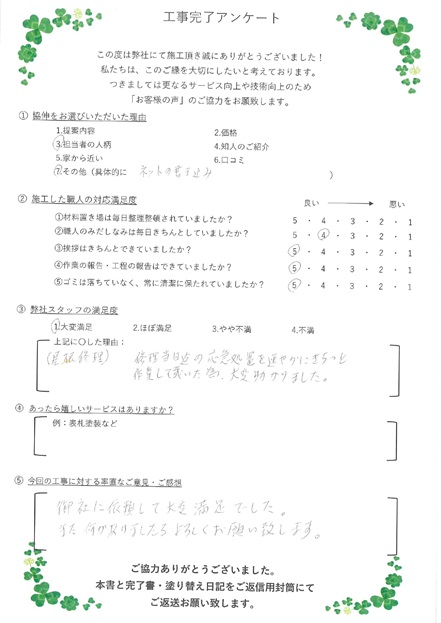 工事完了アンケート
この度は弊社にて施工頂き誠にありがとうございました！
私たちは、このご縁を大切にしたいと考えております。
つきましては更なるサービス向上や技術向上のため
「お客様の声」のご協力をお願致します。
① 協伸をお選びいただいた理由
1.提案内容 2.価格
3.担当者の人柄 4.知人のご紹介
5.家から近い 6.口コミ
7.その他（具体的に ネットの書き込み ）
② 施工した職人の対応満足度 良い 悪い
①材料置き場は毎日整理整頓されていましたか？ 5 ・ 4 ・ 3 ・ 2 ・ 1
②職人のみだしなみは毎日きちんとしていましたか？ 5 ・ 4 ・ 3 ・ 2 ・ 1
③挨拶はきちんとできていましたか？ 5 ・ 4 ・ 3 ・ 2 ・ 1
④作業の報告・工程の報告はできていましたか？ 5 ・ 4 ・ 3 ・ 2 ・ 1
⑤ゴミは落ちていなく、常に清潔に保たれていましたか？ 5 ・ 4 ・ 3 ・ 2 ・ 1
③ 弊社スタッフの満足度
1.大変満足 2.ほぼ満足 3.やや不満 4.不満
上記に〇した理由：
修理当日迄の応急処置を速やかにきちっと
作業して戴いた為、大変助かりました。
④ あったら嬉しいサービスはありますか？
例：表札塗装など
⑤ 今回の工事に対する率直なご意見・ご感想
御社に依頼して大変満足でした。
また何かありましたらよろしくお願い致します。
ご協力ありがとうございました。
本書と完了書・塗り替え日記をご返信用封筒にて
ご返送お願い致します。